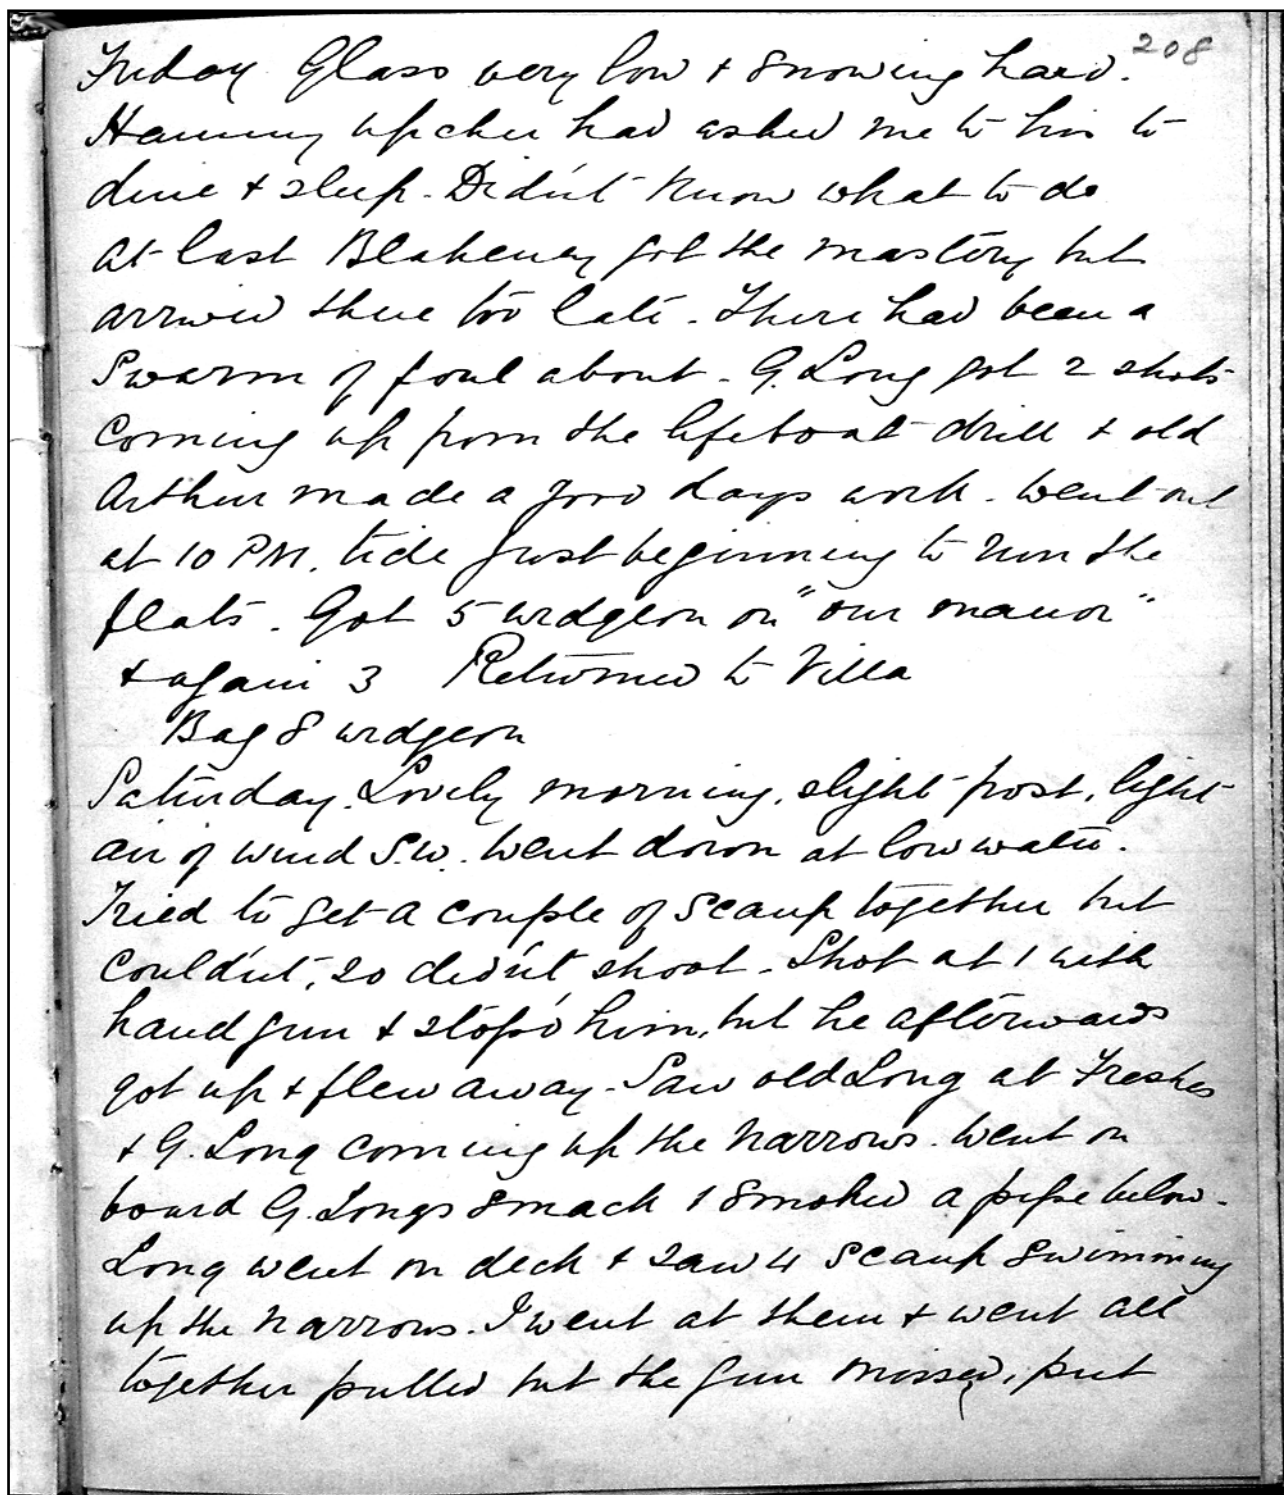 208
Friday Glass very low & snowing hard.
Hammy Upcher had asked me to his to
dine & sleep. Didn't know what to do
at last Blakeney got the mastery but
arrived there too late. There had been a
swarm of foul about. G. Long got 2 shots
coming up from the lifeboat drill & old
Arthur made a good days work. Went out
at 10 PM. tide just beginning to run the
flats. Got 5 widgeon on "our manor"
& again 3 Returned to Villa
Bag 8 widgeon
Saturday. Lovely morning, slight frost, light
air of wind S.W. Went down at low water.
Tried to get a couple of Scaup together but
couldn't, so didn't shoot. Shot at 1 with
hand gun & stop'd him, but he afterwards
got up & flew away. Saw old Long at Freshes
& G. Long coming up the Narrows. Went on
board G. Longs smack & smoked a pipe below.
Long went on deck & saw 4 Scaup swimming
up the Narrows. I went at them & went all
together pulled but the gun missed, put